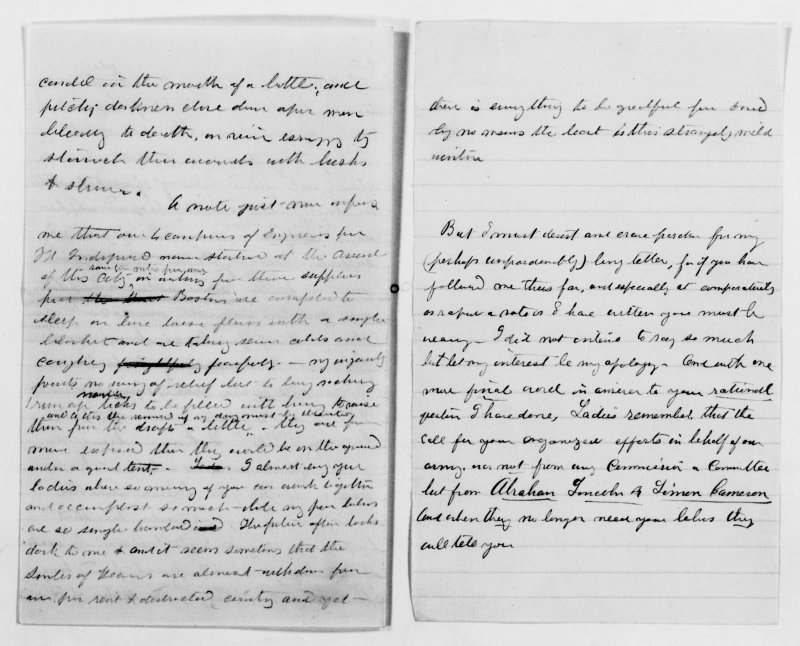 candle in the mouth of a bottle, and
pitchy darkness close down upon men
bleeding to death, or vain essaying to
staunch their wounds with husks
& straw.
A note just now informs
me that our 4 companies of Engineers from
now stationed at the Arsenal
of this City
in waiting for their supplies
from Boston are compelled to
sleep on bare floors with a single
blanket and are taking severe colds and
coughing fearfully – my ingenuity
points no way of relief but to buy sacking
run up many ticks to be filled with hay to raise
them from the drafts a little, they are far
more exposed than they would be on the ground
under a good tent. I almost envy you
ladies where so many of you can work together
and accomplish so much while my poor labors
are so single handed The future often looks
dark to me & it seems sometimes that the
smiles of Heaven are almost withdrawn from
our poor rent & distracted country and yet
there is everything to be grateful for and
by no means the least is this strangely mild
winter
But I must desist and crave pardon for my
(perhaps unpardonably) long letter, for if you have
followed me thus far, and especially at comparatively
as rapid a rate as I have written you must be
weary – I did not intend to say so much
but let my interest be my apology – And with one
more final word in answer to your rational
question I have done, Ladies remember that the
call for your organized efforts in behalf of our
army was not from any Commission or Committee
but from Abraham Lincoln & Simon Cameron
and when they no longer need your labors they
will tell you